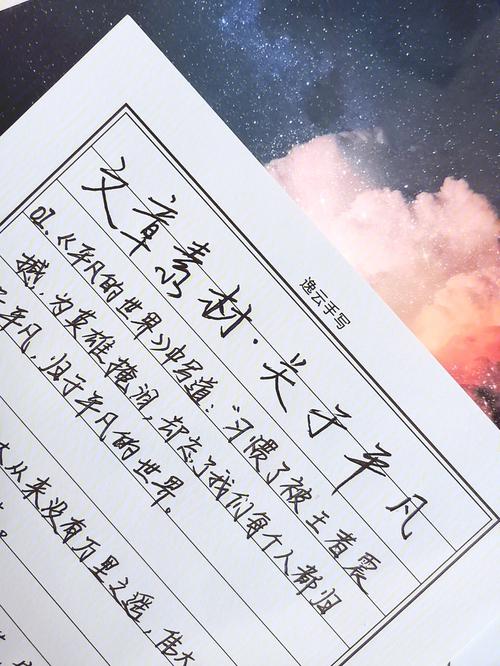 文章素材·关于平凡
逸云手写
02.《平凡的世界》中写道:“习惯了被王者震
撼,为英雄掩泪,却忘了我们每个人都归
于平凡,归于平凡的世界。
大从来没有万里之遥,伟大